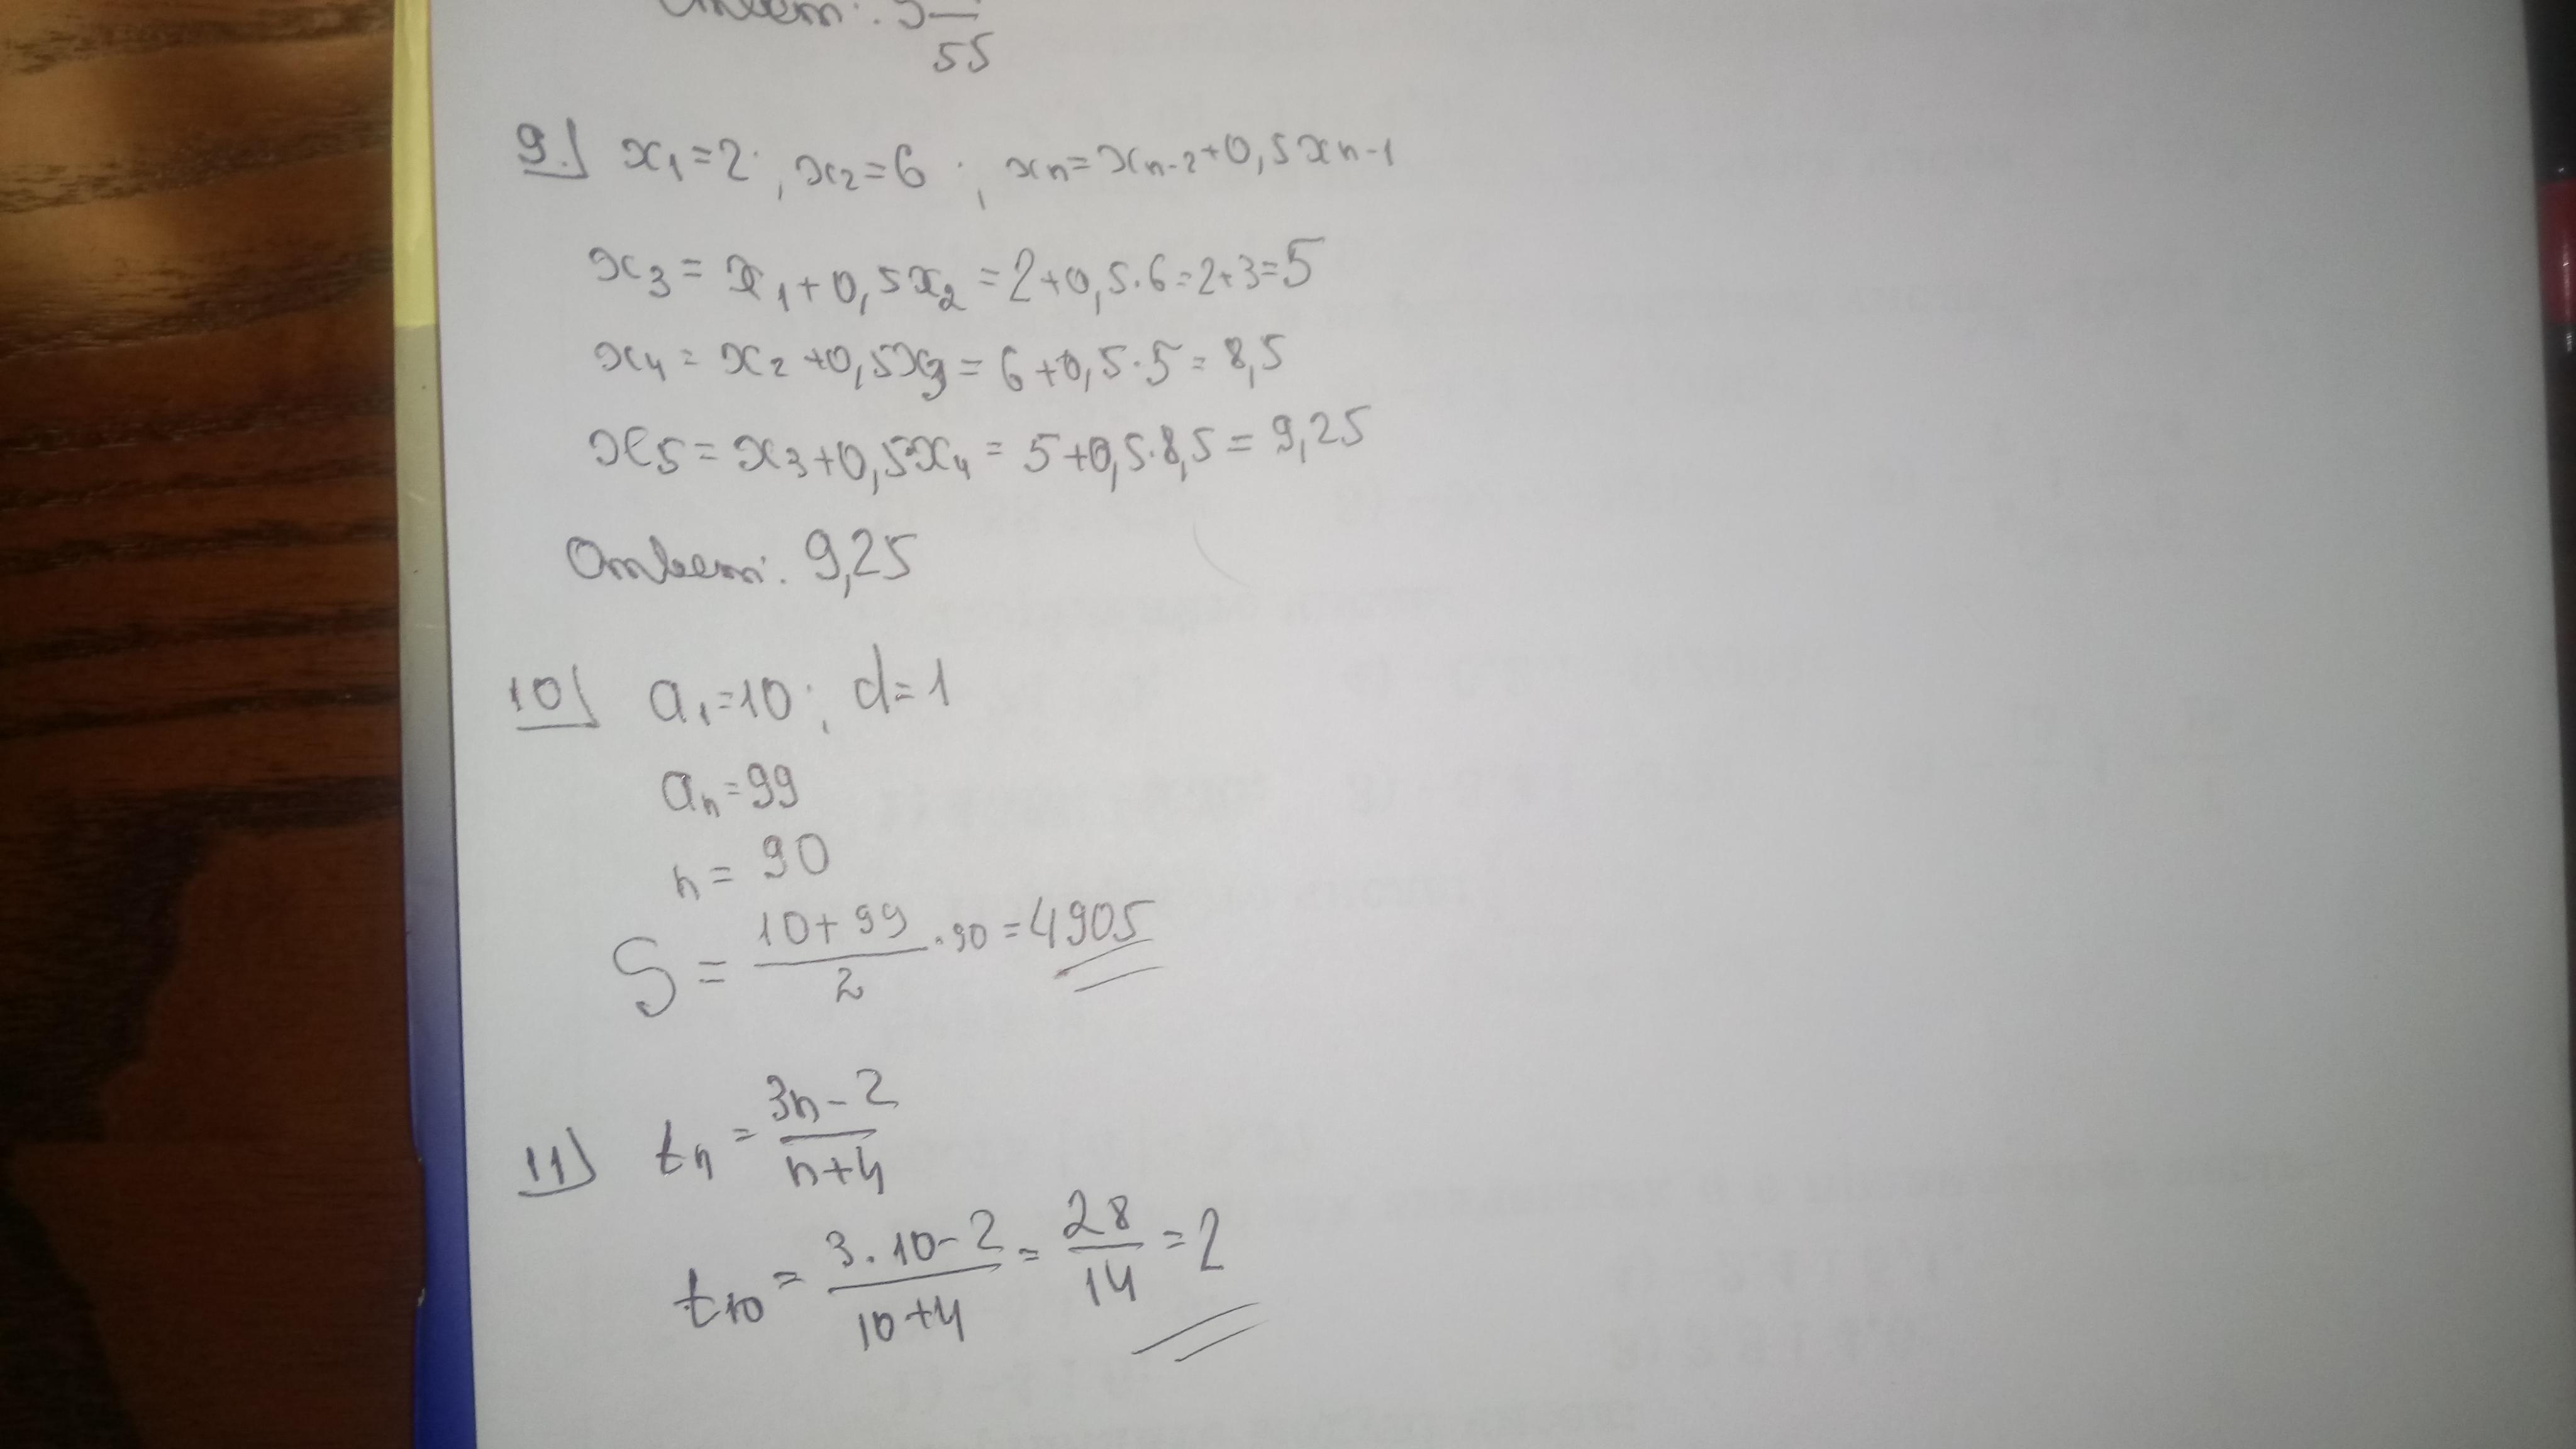 Ответ: 3 —
55
9.) x₁=2; x₂=6; xₙ=xₙ₋₂+0,5xₙ₋₁
x₃ = x₁+0,5x₂ = 2+0,5·6=2+3=5
x₄ = x₂+0,5x₃ = 6+0,5·5 = 8,5
x₅ = x₃+0,5x₄ = 5+0,5·8,5 = 9,25
Ответ: 9,25
10) a₁=10; d=1
aₙ=99
n = 90
S = (10+99)/2 · 90 = 4905
11) tₙ = (3n-2)/(n+4)
t₁₀ = (3·10-2)/(10+4) = 28/14 = 2